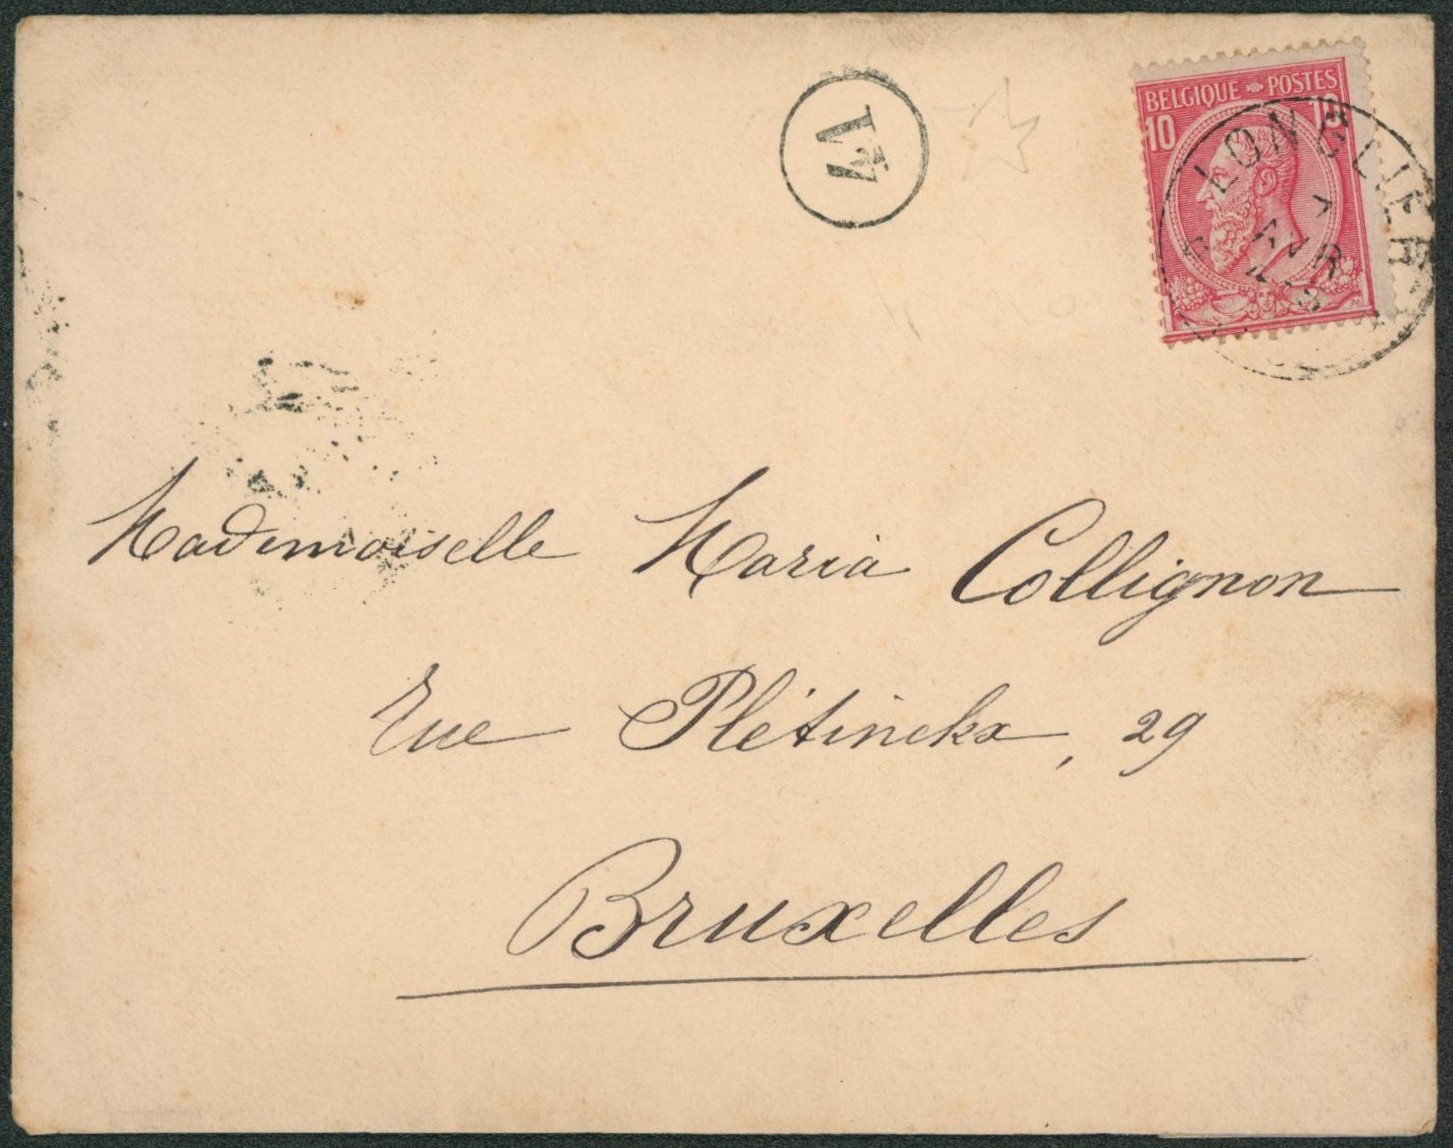 BELGIQUE POSTES
10 10
LONGLIER
AVR
Mademoiselle Maria Collignon
Rue Plétinckx, 29
Bruxelles